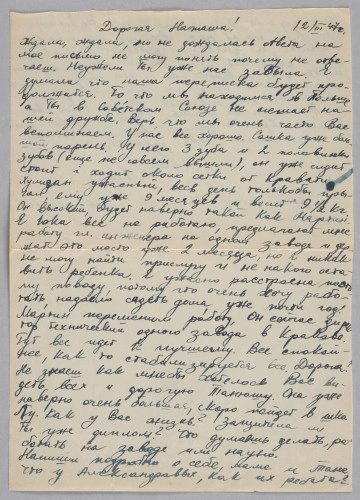 Дорогая Наташа! 12/III-47г.
Ждала, ждала, но не дождалась ответа на
мое письмо не могу понять почему не отве-
чаеш. Неужели Ты уже нас забыла. Я
думала что наша переписка будет про-
должатся. То что мы находимся в Польше
а Ты в Советском Союзе не мешает на-
шей дружбе. Верь что мы очень часто Вас
вспоминаем. У нас все хорошо. уже боль-
шой парень. У него 3 зуба и 2 половинки
зубов (еще не совсем вышли), он уже сидит
стоит и ходит около сетки от кровати.
ужасный, весь день только бы
ему уже 9 месяцев и весит 9½ кг.
Он высокий будет наверно такой как Мартин.
Я пока все не работаю, предлагают мне
работу инженера на одном заводе и дер-
жат это место уже 2 месяца, но я никак
не могу найти прислугу и не на кого оста-
вить ребенка. Я ужасно расстроена по
этому поводу, потому что очень хочу рабо-
тать надоело сидеть дома уже почти год.
Мартин переменил работу, Он сейчас дирек-
тор технический одного завода в Кракове.
Тут все идет к лучшему. Все спокой-
нее, как то стабилизируется все. Дорогая!
Не знаеш как мне бы хотелось Вас ви-
деть, всех и дорогую Танюшу. Она уже
наверно очень большая, скоро пойдет в шко-
лу. Как у Вас жизнь? Защитила ли
Ты уже диплом? Что думаеш делать, ра-
ботать на заводе или научно.
Напиши подробно о себе, маме и Тане
что у Александровых, как их ребята?